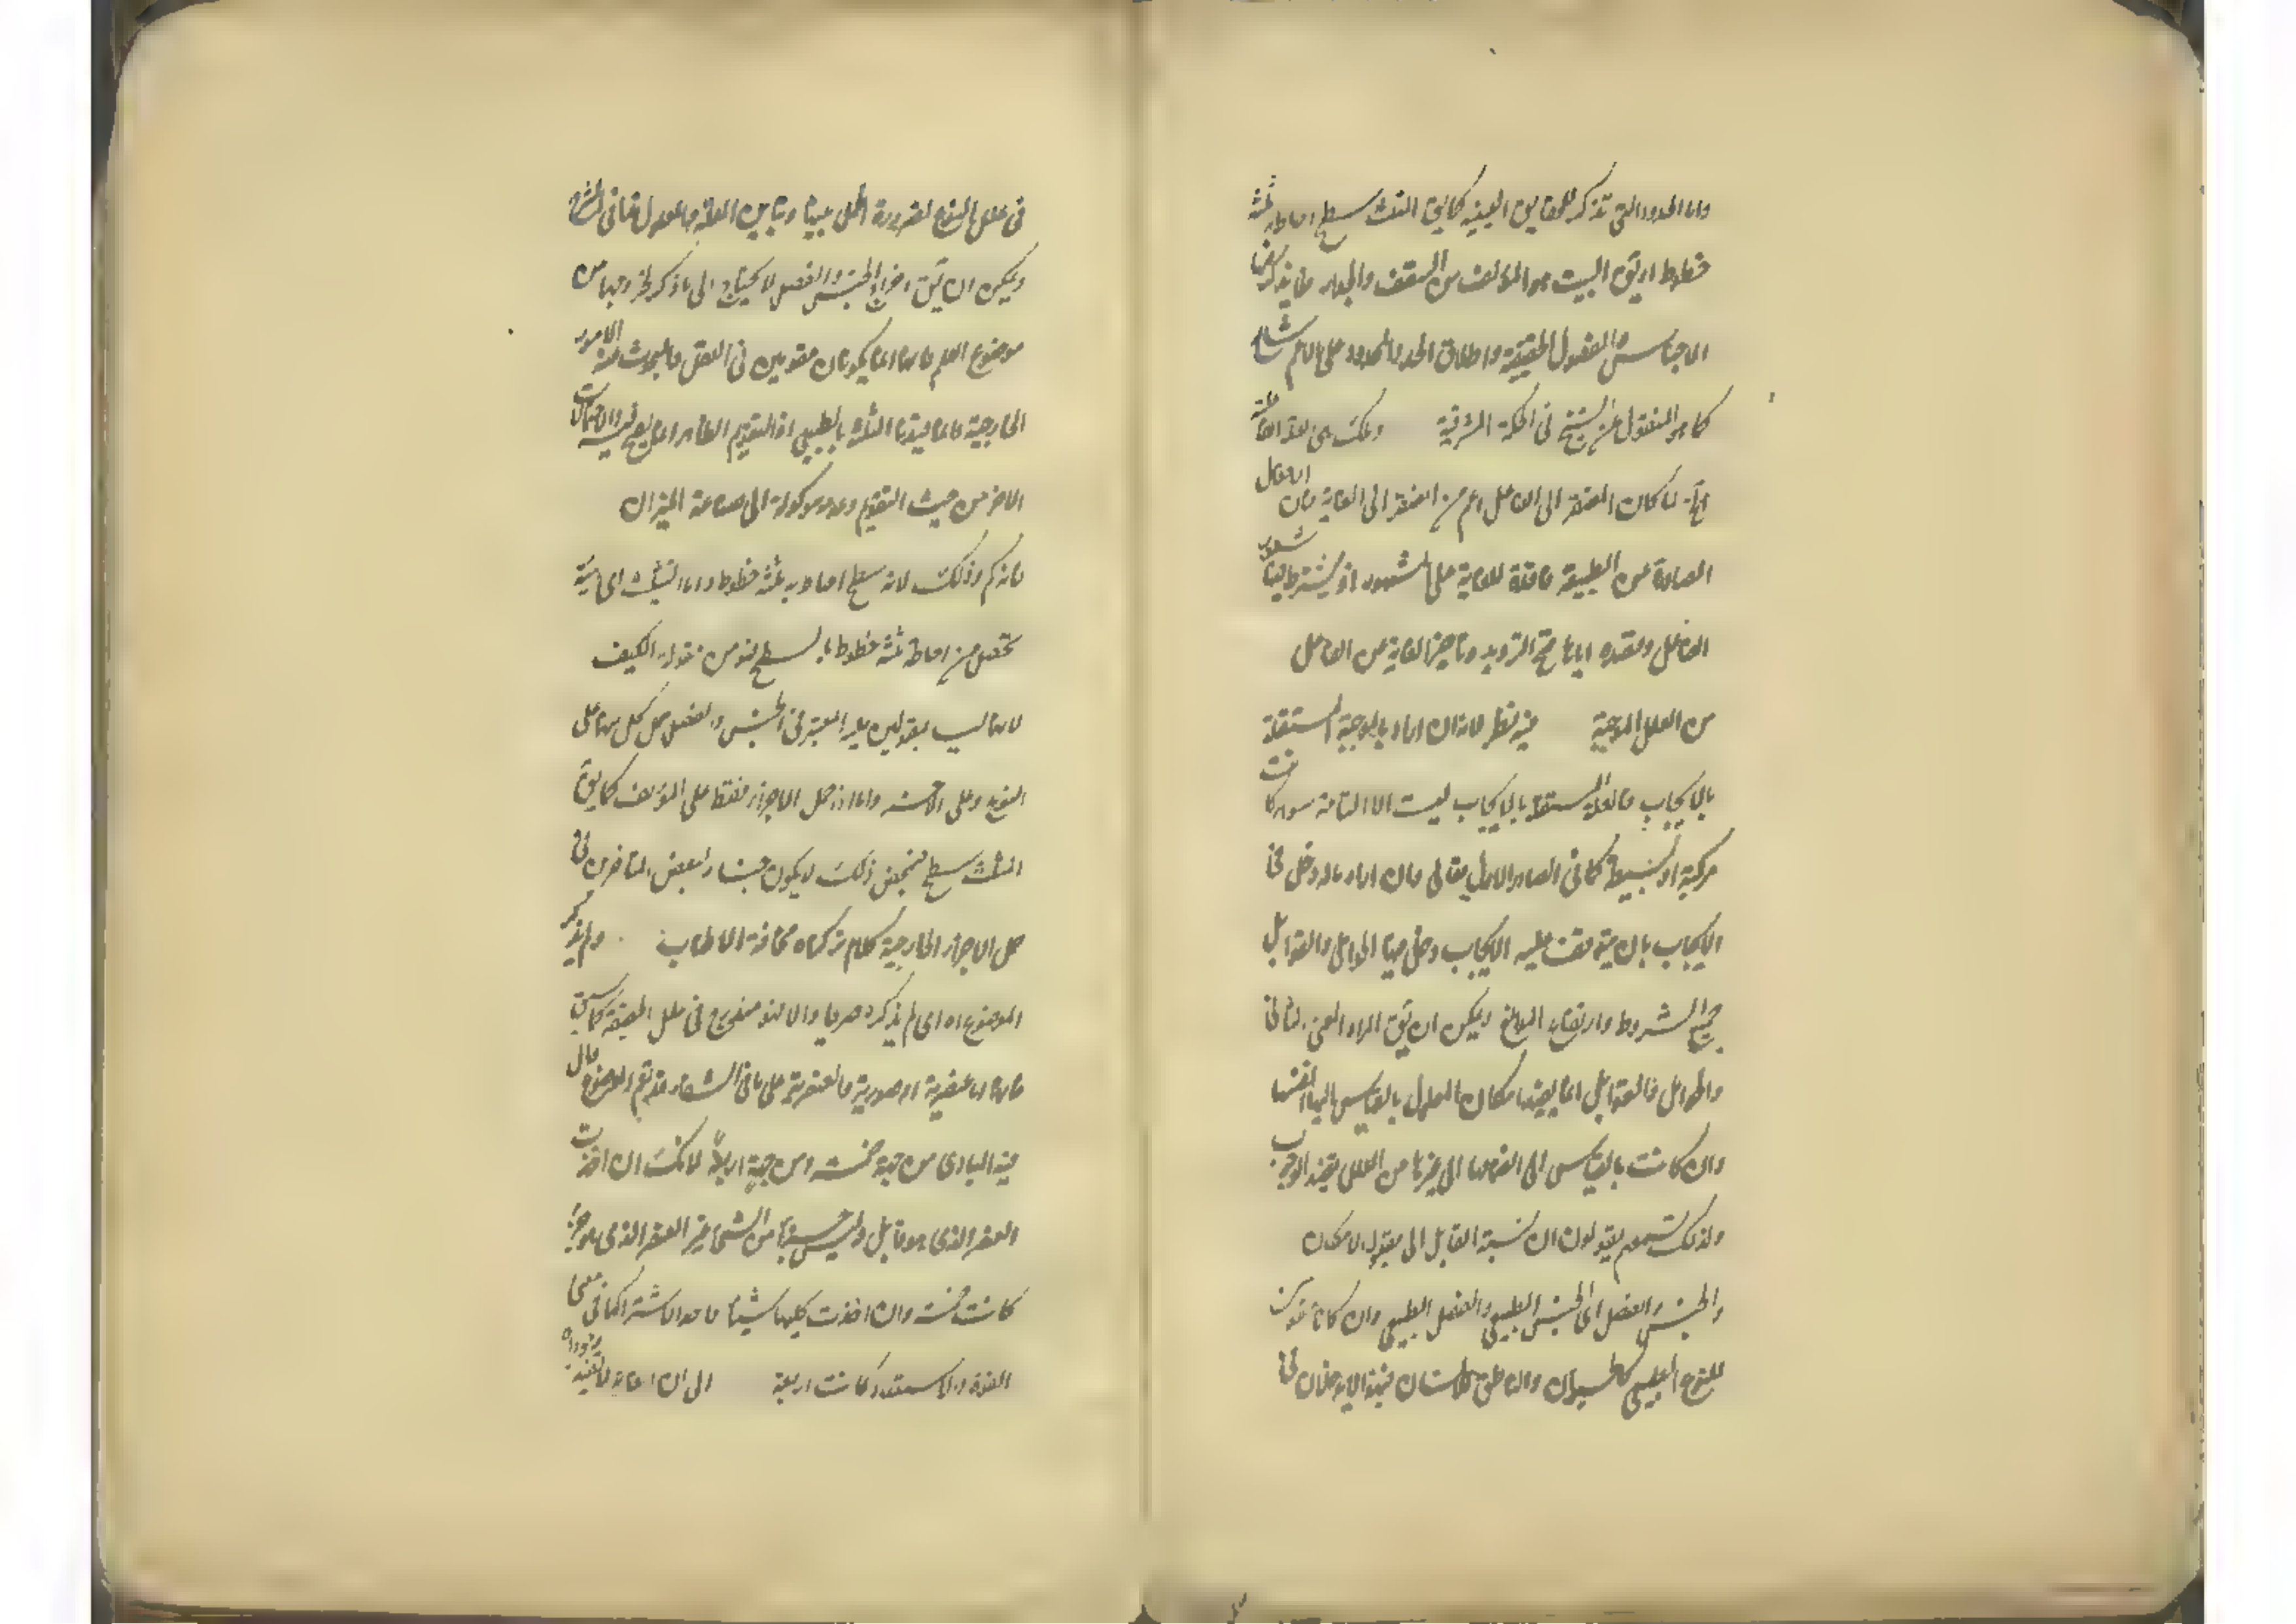 واما الحدود التى تذكر للحقايق العينية كما يق المثلث سطح احاط به ثلثة
خطوط او يق البيت هو المؤلف من السقف والجدار فما يذكر فيها
الاجناس والفصول الحقيقية واطلاق الحد والمحدود على الاعم شايع
كما هو المنقول عن الشيخ فى الحكمة المشرقية وتلك هى علة الغا
لما كان المفتقر الى الفاعل اعم من المفتقر الى الغاية فان الافعال
الصادرة عن الطبيعة فاقدة للغاية على المشهور اذ يشترط فيها شعور
الفاعل وقصده اياها صح الترديد وتاخير الغاية عن الفاعل
من العلل الموجبة فيه نظر لانه ان اراد بالموجبة المستقلة
بالايجاب فالعلة المستقلة بالايجاب ليست الا التامة سواء كانت
مركبة او بسيطة كما فى الصادر الاول تعالى وان اراد ماله دخل فى
الايجاب بان يتوقف عليه الايجاب دخل فيها الحوامل والقوابل
جميع الشروط وارتفاع الموانع ويمكن ان يق المراد المعنى الثانى
والحوامل والقوابل انما يفيدها امكان المعلول بالقياس اليها انفسها
وان كانت بالقياس الى انضمامها الى غيرها من العلل يفيد الوجوب
ولذلك تسمعهم يقولون ان نسبة القابل الى مقبوله الامكان
والجنس والفصل اى الجنس الطبيعى والفصل الطبيعى وان كانا مأخوذين
للنوع الطبيعى كالحيوان والناطق للانسان فهذا لا يدخلان فى
فى علل النوع لضرورة الحمل بينها وتباين العلة والمعلول فما فى الشرح
ويمكن ان يق اخراج الجنس والفصل لا يحتاج الى ما ذكر لخروجها من
موضوع العلم فانهما انما يكونان مقومين فى العقل والمبحوث عنه الامور
الخارجية وانما قيدنا المثلث بالطبيعى اذ التقويم الظاهر انما يصح فيه والاحتمالات
الاخر من حيث التقويم وعدمه موكولة الى صناعة الميزان
فانه كم وذلك لانه سطح احاط به ثلثة خطوط واما المثلث اى هيئة
تحصل من احاطة ثلثة خطوط بالسطح فهو من مقولة الكيف
لانهما ليسا بمقولين عليه المعتبر فى الجنس والفصل حمل كل منهما على
النوع وعلى الاخر واما اذا حمل الاجزاء فقط على المؤلف كما يق
المثلث سطح فبمحض ذلك لا يكون جنسا ولبعض المتأخرين فى
حمل الاجزاء الخارجية كلام تركناه مخافة الاطناب ولم يذكر
الموضوع اه اى لم يذكره صريحا والا فهو مندرج فى علل الحقيقة كما سبق
فانها اما عنصرية او صورية فالعنصرية على ما فى الشفاء قد تعم الموضوع قال
فيه المبادى من جهة خمسة ومن جهة اربعة لانك ان اخذت
العنصر الذى هو قابل وليس جزءا من الشئ غير العنصر الذى هو جزء
كانت خمسة وان اخذت كليهما شيئا واحدا لاشتراكهما فى معنى
القوة والاستعداد كانت اربعة الى ان الغاية لا تفيد وجود